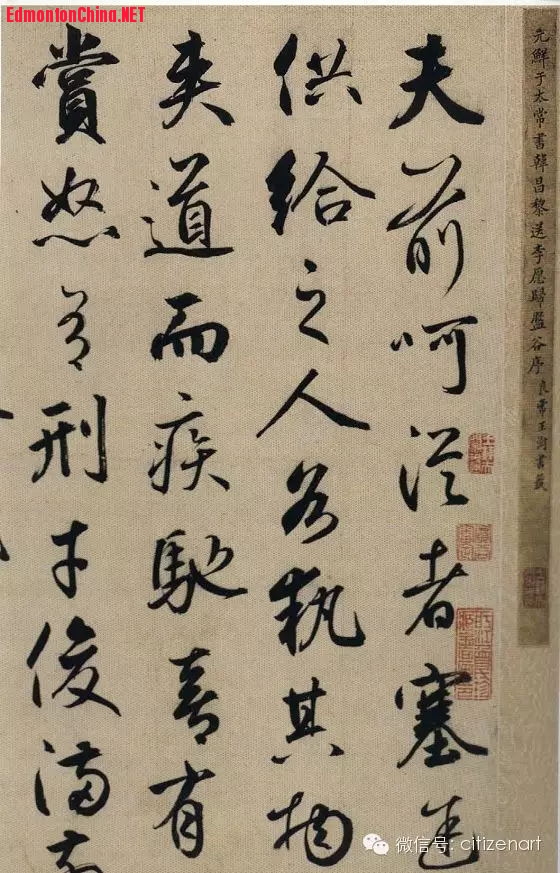 EdmontonChina.NET
元鮮于太常書韓昌黎送李愿歸盤谷序 良常王澍書籤
夫前呵從者塞途
供給之人各執其物
夾道而疾馳喜有
賞怒有刑才俊滿
微信号: citizenart